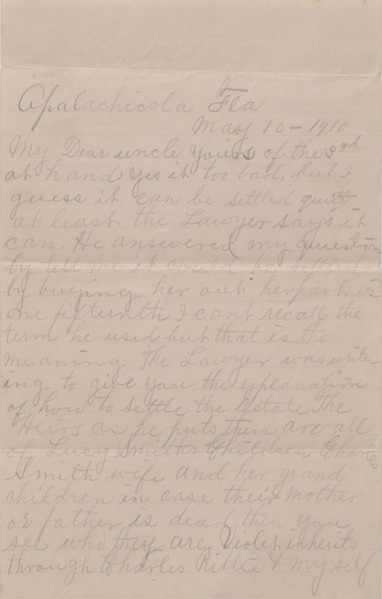 Apalachicola Fla
May 10 - 1910
My Dear uncle yours of the 3rd
at hand yes it too bad. but I
guess it can be settled quiet
at least the Lawyer says it
can. He answered my question
by tell me it could be settled
by buying her out her part is
one fifteenth I cant recall the
term he used but that is the
meaning The Lawyer was write-
ing to give you the explanation
of how to settle the Estate The
Heirs as he puts them are all
of Lucy Smiths Children Charles
Smith wife and her grand
children in case their Mother
or father is dead then you
see who they are Violep inherits
through Charles Rillie & my self